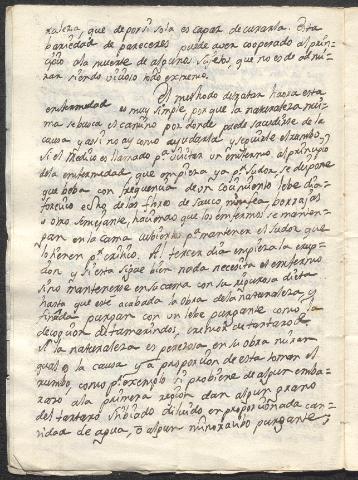 raleza, que de por si sola es capaz de curarla. Esta
bariedad de pareceres puede aver cooperado al prin=
cipio ala muerte de algunos sujetos, que no es de admi=
rar siendo vicioso todo extremo.
El methodo de tratar hasta esta
enfermedad es muy simple porque la naturaleza mis=
ma se busca el camino por donde puede sacudirse de la
causa y asi no ay como ayudarla y seguirle el rumbo=
Si el Medico es llamado pª visitar un enfermo al principio
dela enfermedad que empieza ya pr sudor, se dispone
que beba con frequencia de un cocimiento lebe dia=
foretico echo de las flores de sauco borrajas
u otro semejante, haciendo que los enfermos se manten=
gan en la cama cubiertos pª mantener el sudor que
tienen pr critico. Al tercer dia empieza la erup=
cion y si esta sigue bien nada necesita el enfermo
sino mantenerse en la cama con su rigurosa dieta
hasta que esté acabada la obra dela naturaleza, y
finada purgan con un lebe purgante como la
decoccion de tamarindos, cremor de tartaro &
Si la naturaleza es perezosa en su obra miran
qual es la causa y a proporcion de esta toman el
rumbo, como pr exemplo si probiene de algun emba=
razo ala primera region dan algun grano
del tartaro stibiado diluido en proporcionada can=
tidad de agua, o algun minorativo purgante;